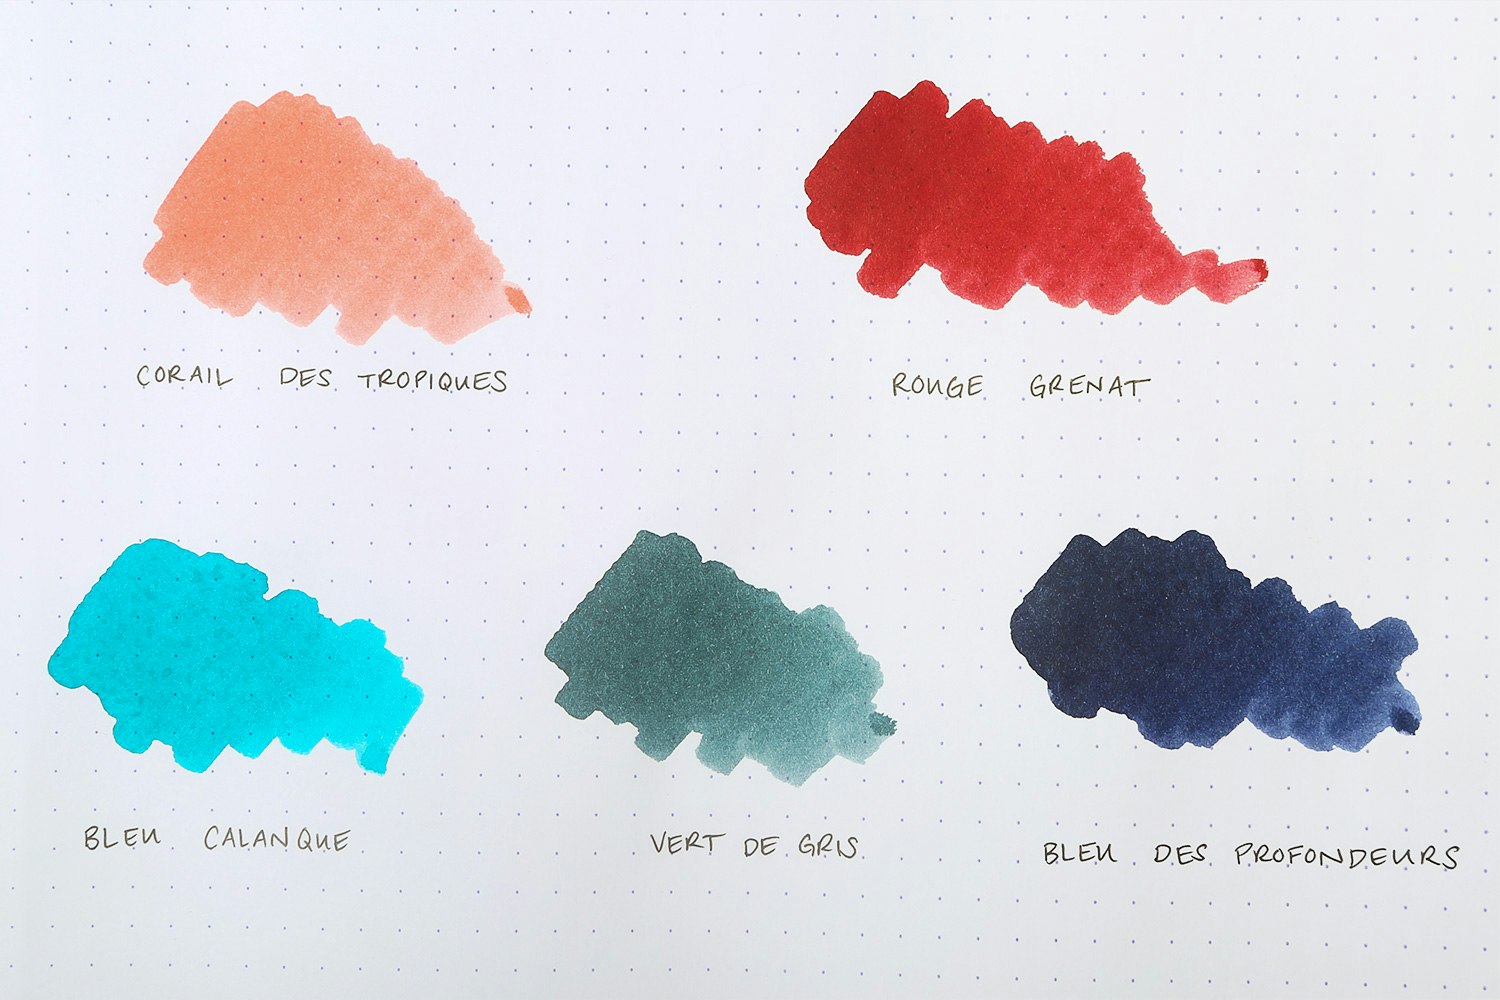 CORAIL DES TROPIQUES
ROUGE GRENAT
BLEU CALANQUE
VERT DE GRIS
BLEU DES PROFONDEURS